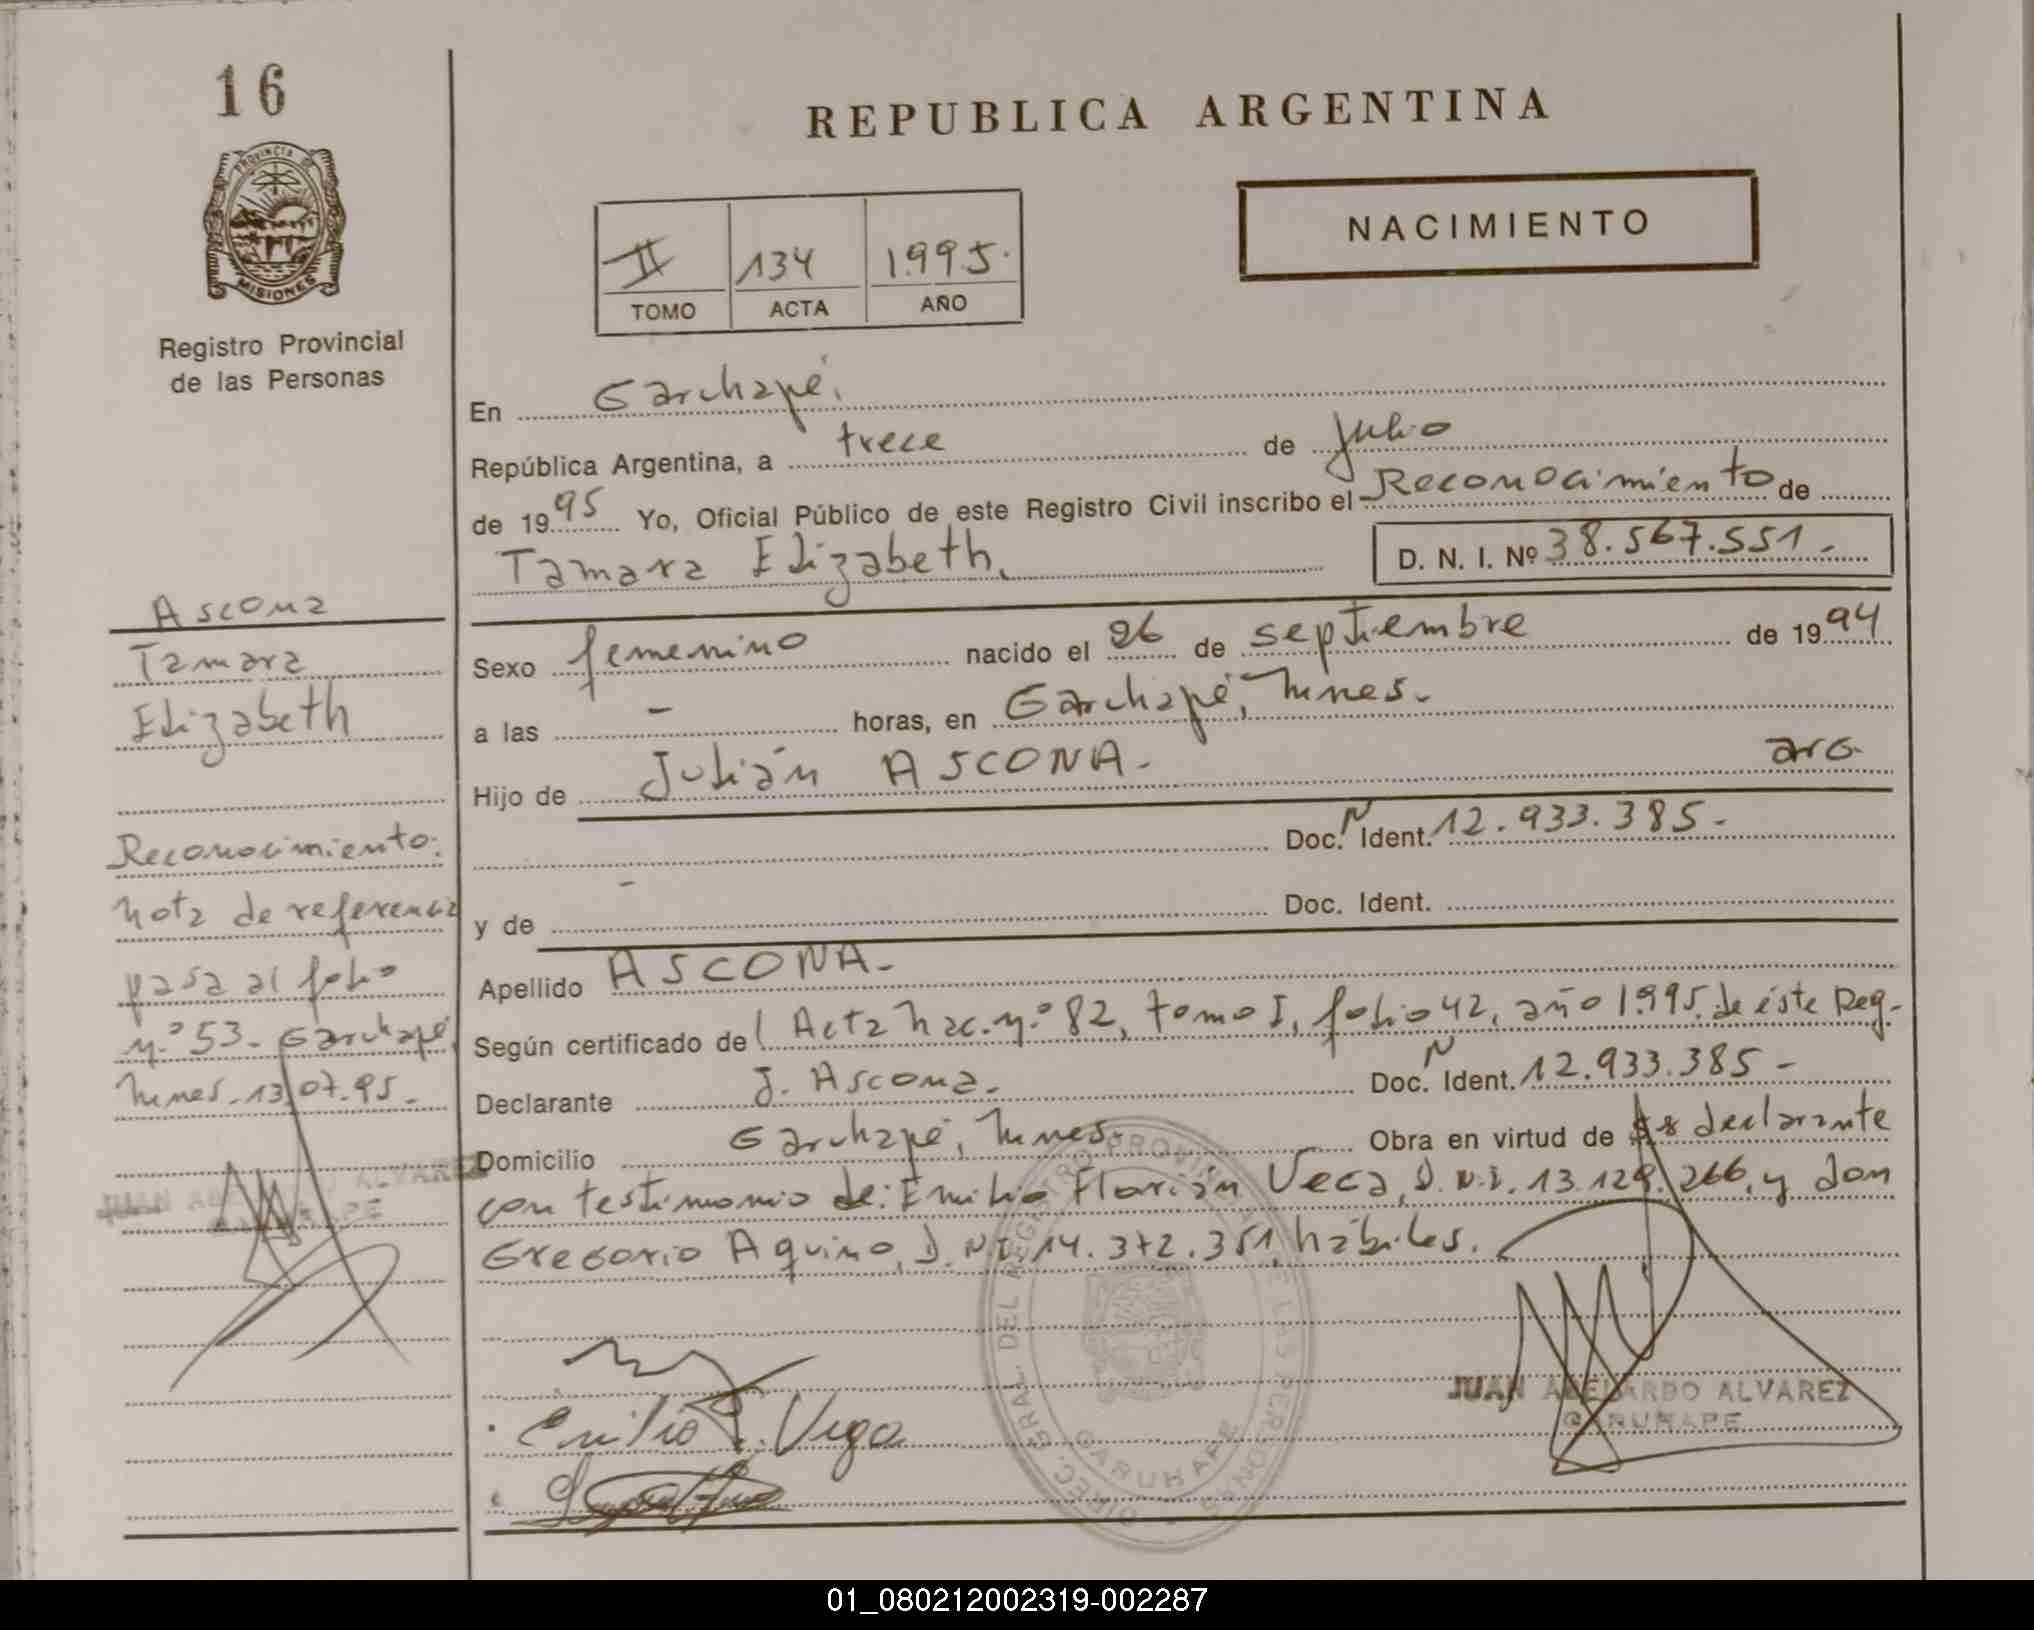 16
PROVINCIA DE
MISIONES
Registro Provincial
de las Personas
REPUBLICA ARGENTINA
NACIMIENTO
II 134 1.995.
TOMO ACTA AÑO
En Garuhapé,
República Argentina, a trece de Julio
de 1995 Yo, Oficial Público de este Registro Civil inscribo el Reconocimiento de
Tamara Elizabeth. D. N. I. Nº 38.567.551.-
Sexo femenino nacido el 26 de septiembre de 1994
a las - horas, en Garuhapé, Mnes.
Hijo de Julián ASCONA.- arg.
Doc. N Ident. 12.933.385.-
y de - Doc. Ident.
Apellido ASCONA.-
Según certificado de Acta Nac. n.º 82, tomo I, folio 42, año 1.995. de éste Reg.-
Declarante J. Ascona. Doc. N Ident. 12.933.385 -
Domicilio Garuhapé, Mnes. Obra en virtud de declarante
con testimonio de: Emilio Florián Vega, D.N.I. 13.129.266, y don
Gregorio Aquino, D.N.I. 14.372.351, hábiles.
Emilio F. Vega
JUAN ABELARDO ALVAREZ
GARUHAPE
DIREC. GRAL. DEL REGISTRO PROVINCIAL DE LAS PERSONAS
GARUHAPE
Ascona
Tamara
Elizabeth
Reconocimiento.
Nota de referencia
pasa al folio
n.º 53 - Garuhapé,
Mnes. 13.07.95.-
JUAN ABELARDO ALVAREZ
GARUHAPE
01_080212002319-002287